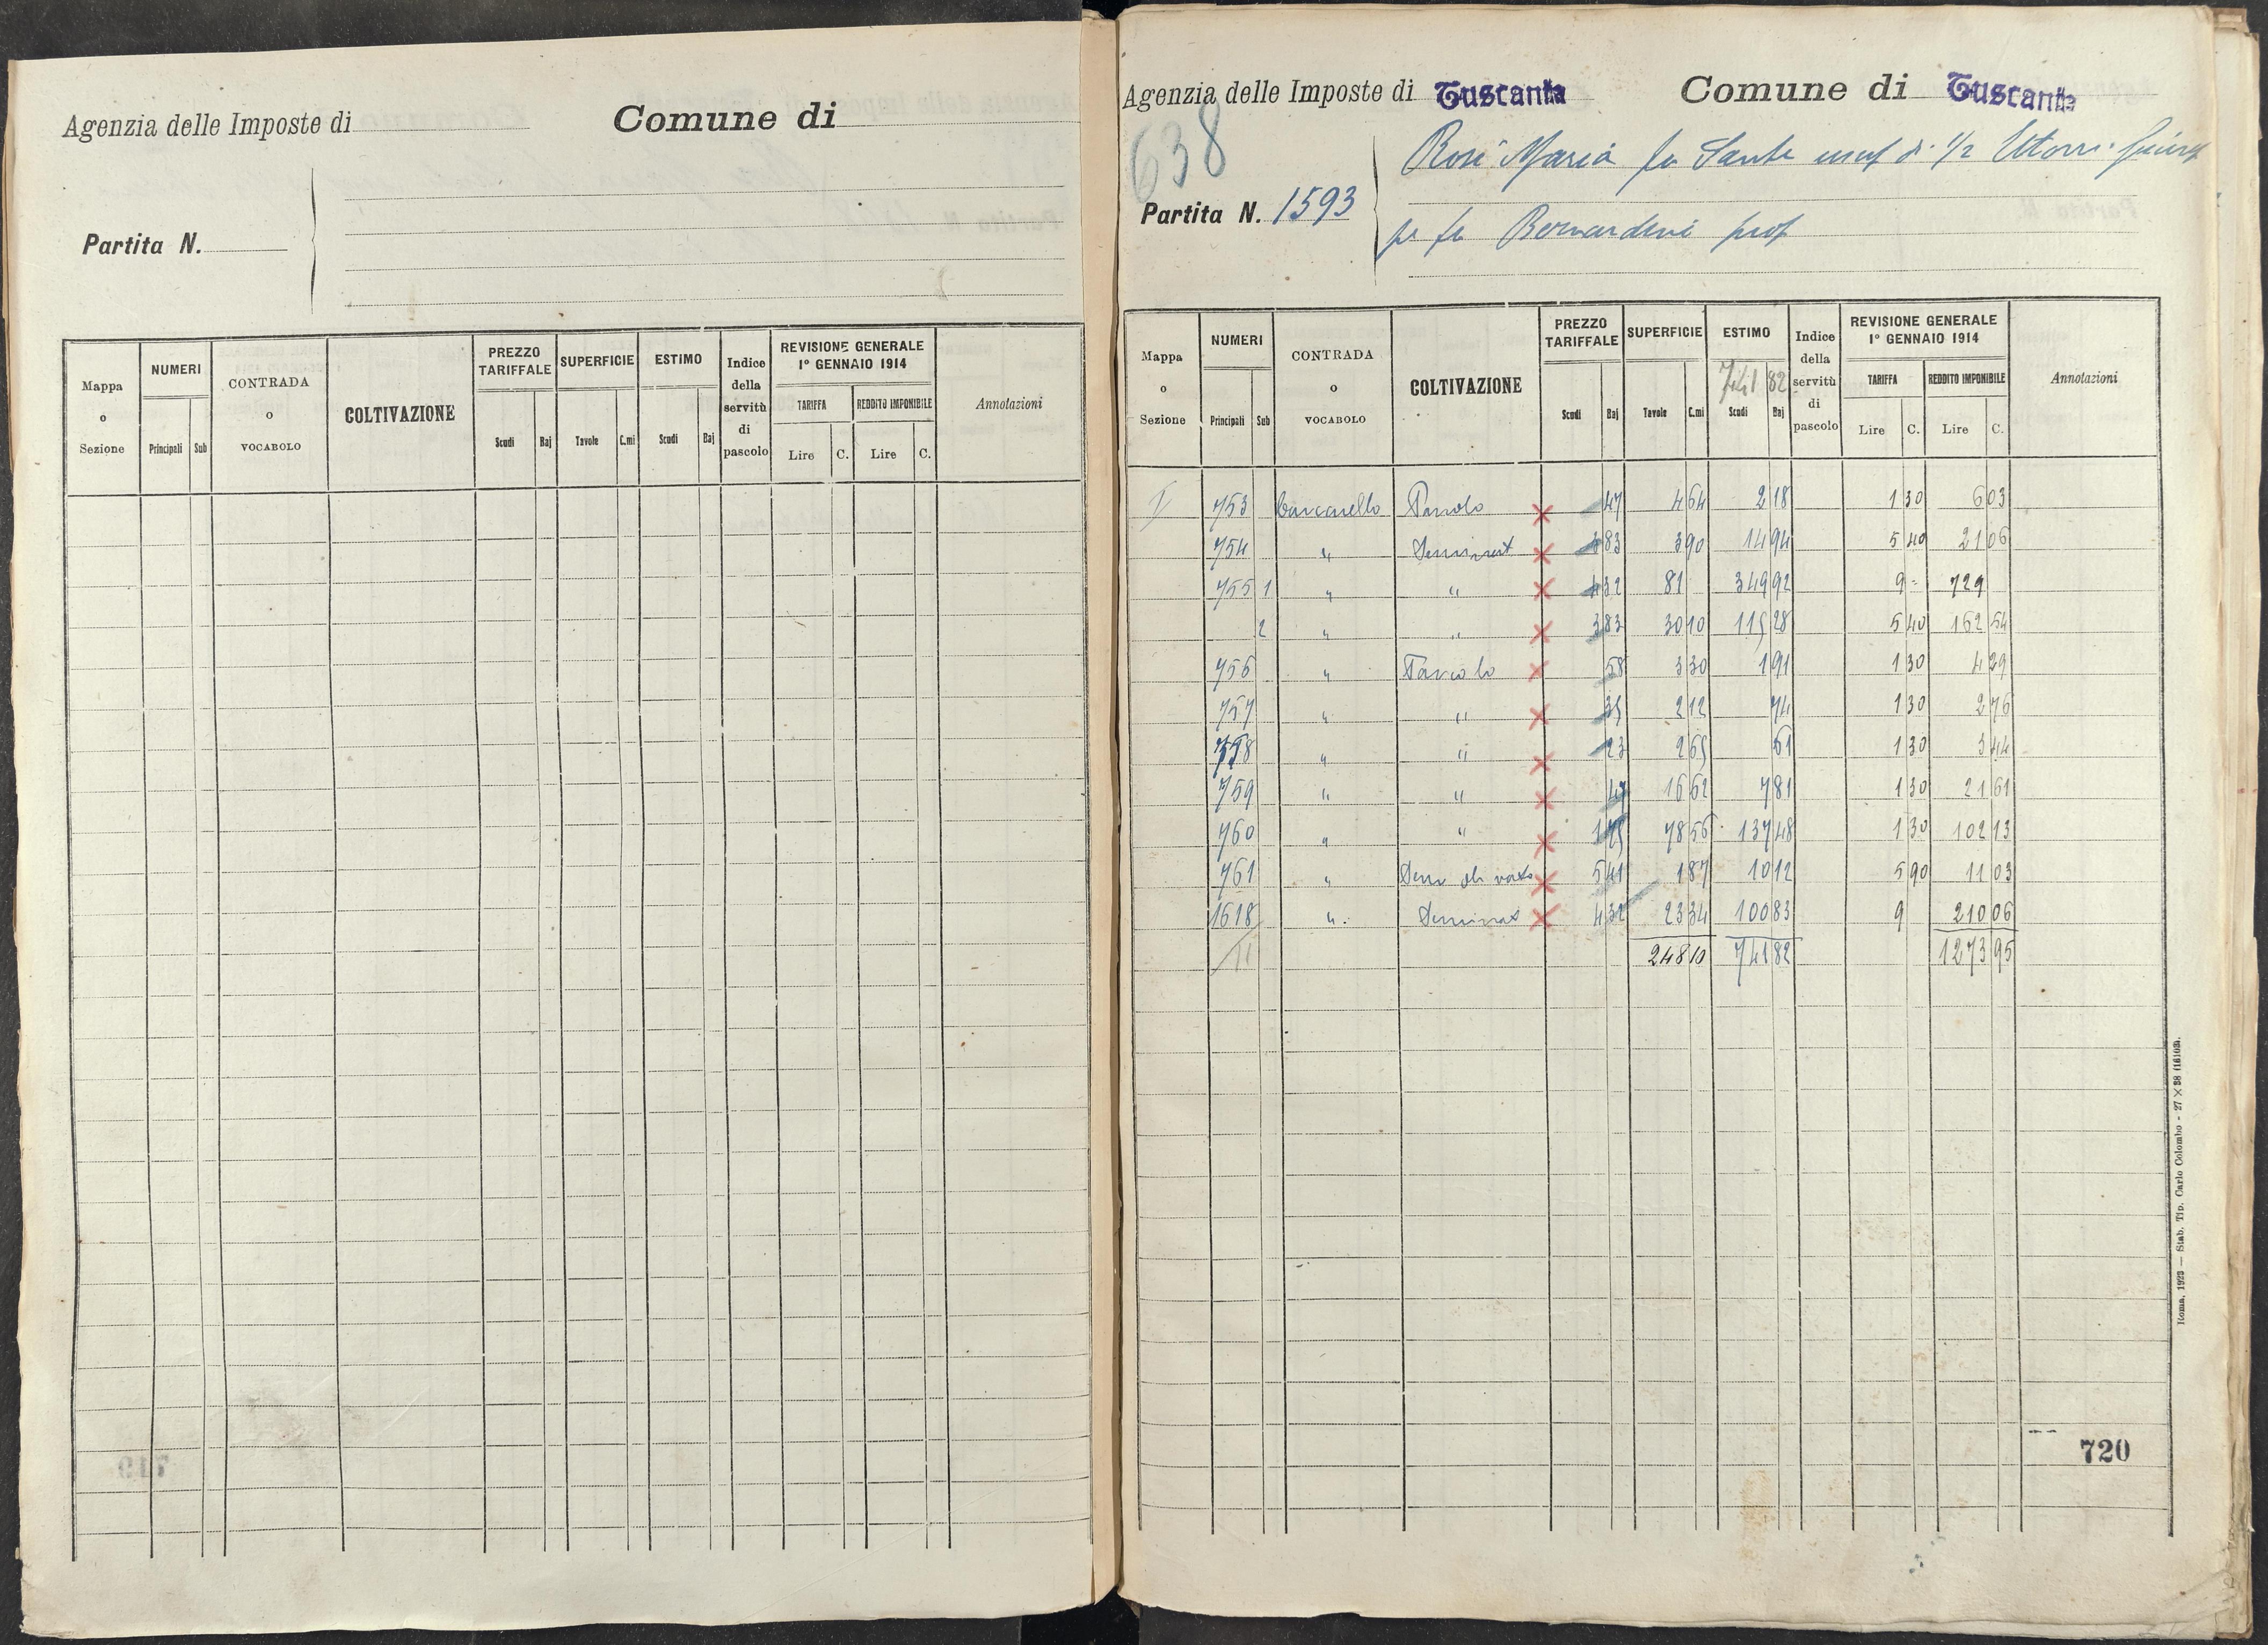 Agenzia delle Imposte di
Comune di
Partita N.
Mappa o Sezione
NUMERI
Principali Sub
CONTRADA o VOCABOLO
COLTIVAZIONE
PREZZO TARIFFALE
Scudi Baj
SUPERFICIE
Tavole C.mi
ESTIMO
Scudi Baj
Indice della servitù di pascolo
REVISIONE GENERALE
1° GENNAIO 1914
TARIFFA
Lire C.
REDDITO IMPONIBILE
Lire C.
Annotazioni
Agenzia delle Imposte di Tuscania
Comune di Tuscania
638
Partita N. 1593
Rosi Maria fu Sante usuf di 1/2
pe fu Bernardini prop
Mappa o Sezione
NUMERI
Principali Sub
CONTRADA o VOCABOLO
COLTIVAZIONE
PREZZO TARIFFALE
Scudi Baj
SUPERFICIE
Tavole C.mi
ESTIMO
741 82
Scudi Baj
Indice della servitù di pascolo
REVISIONE GENERALE
1° GENNAIO 1914
TARIFFA
Lire C.
REDDITO IMPONIBILE
Lire C.
Annotazioni
I 753 Pascolo 47 4 64 2 18 1 30 6 03
754 " Seminat 3 83 3 90 14 94 5 40 21 06
755 1 " " 4 32 81 349 92 9 - 729
2 " " 3 83 30 10 115 28 5 40 162 54
756 " Pascolo 58 3 30 1 91 1 30 4 29
757 " " 35 2 12 74 1 30 2 76
758 " " 23 2 65 61 1 30 3 44
759 " " 47 16 62 7 81 1 30 21 61
760 " " 1 75 78 56 137 48 1 30 102 13
761 " 5 41 1 87 10 12 5 90 11 03
1618 " Seminat 4 32 23 34 100 83 9 210 06
11 248 10 741 82 1273 95
720
Roma, 1923 — Stab. Tip. Carlo Colombo - 27 × 38